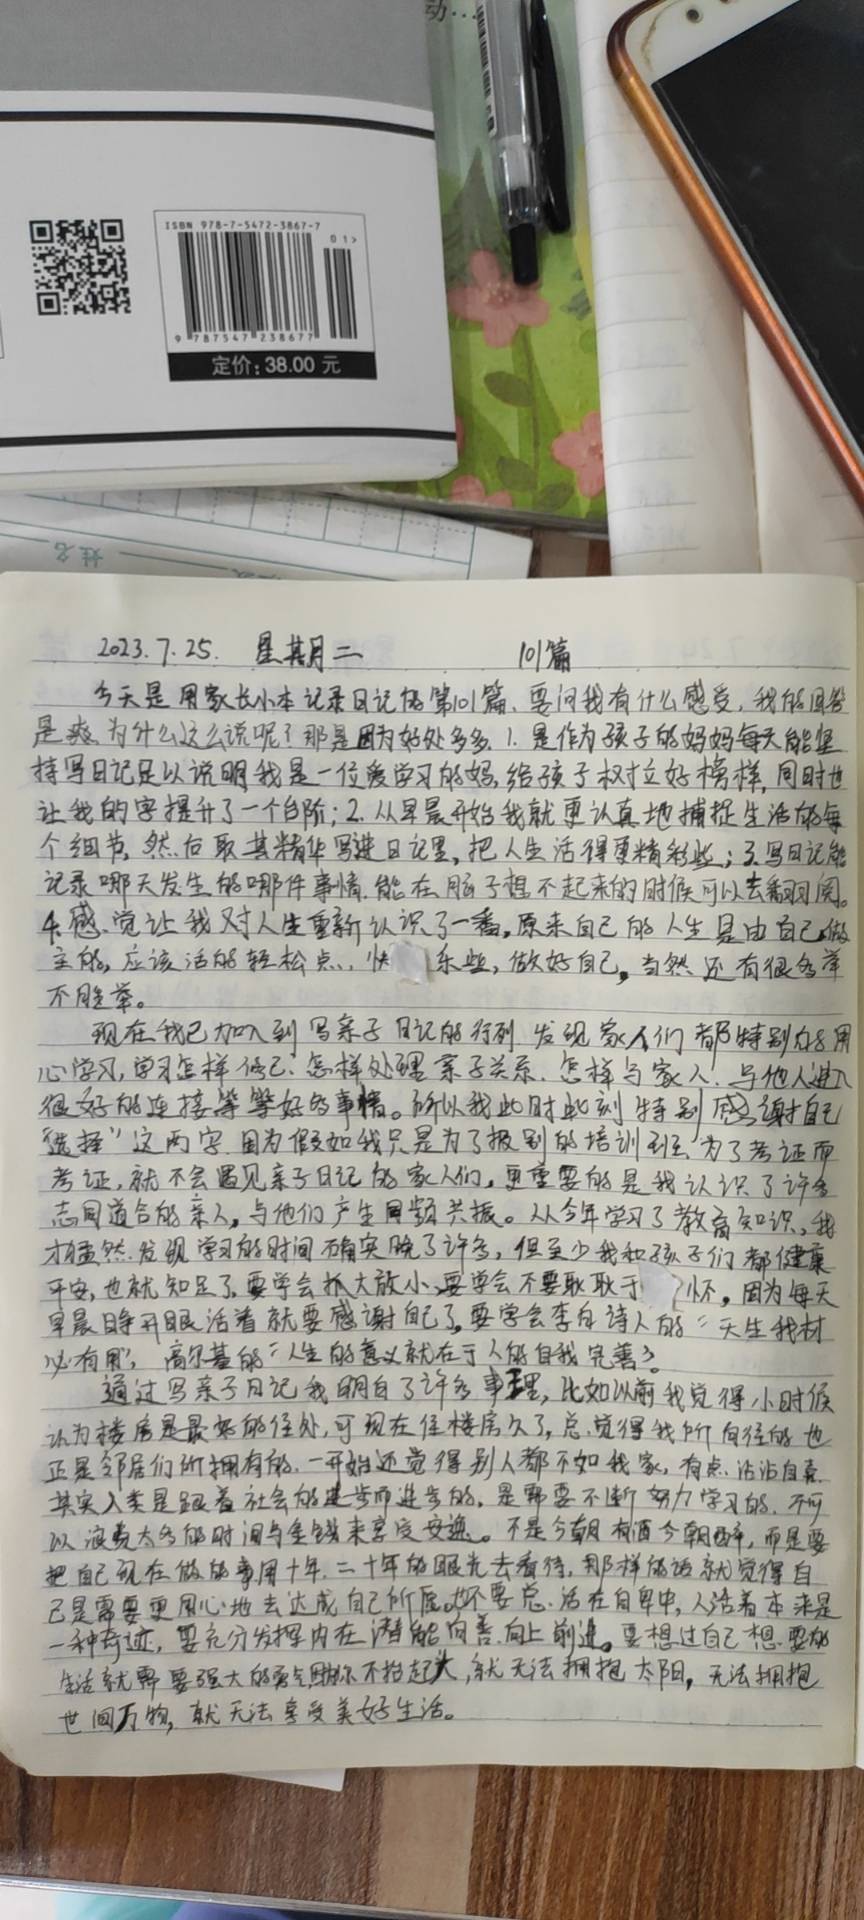 动…
ISBN 978-7-5472-3867-7
01>
9 787547 238677
定价：38.00 元
姓名
2023.7.25. 星期二 101篇
今天是用家长小本记录日记的第101篇，要问我有什么感受，我的回答
是爽，为什么这么说呢？那是因为好处多多，1.是作为孩子的妈妈每天能坚
持写日记足以说明我是一位爱学习的妈，给孩子树立好榜样，同时也
让我的字提升了一个台阶；2.从早晨开始我就更认真地捕捉生活的每
个细节，然后取其精华写进日记里，把人生活得更精彩些；3.写日记能
记录哪天发生的哪件事情，能在脑子想不起来的时候可以去翻翻阅。
4.感觉让我对人生重新认识了一番，原来自己的人生是由自己做
主的，应该活的轻松点，快乐些，做好自己，当然还有很多举
不胜举。
现在我已加入到写亲子日记的行列，发现家人们都特别的用
心学习，学习怎样修己、怎样处理亲子关系、怎样与家人、与他人进入
很好的连接等等好多事情。所以我此时此刻特别感谢自己
“选择”这两字，因为假如我只是为了报别的培训班，为了考证而
考证，就不会遇见亲子日记的家人们，更重要的是我认识了许多
志同道合的亲人，与他们产生同频共振。从今年学习了教育知识，我
才猛然发现学习的时间确实晚了许多，但至少我和孩子们都健康
平安，也就知足了，要学会抓大放小，要学会不要耿耿于怀，因为每天
早晨睁开眼活着就要感谢自己了，要学会李白诗人的“天生我材
必有用”，高尔基的“人生的意义就在于人的自我完善”。
通过写亲子日记我明白了许多事理，比如以前我觉得小时候
认为楼房是最好的住处，可现在住楼房久了，总觉得我所自住的也
正是邻居们所拥有的，一开始还觉得别人都不如我家，有点沾沾自喜
其实人类是跟着社会的进步而进步的，是需要不断努力学习的，不可
以浪费太多的时间与金钱来享受安逸。不是今朝有酒今朝醉，而是要
把自己现在做的事用十年、二十年的眼光去看待，那样的话就觉得自
己是需要更用心地去达成自己所愿。不要总活在自卑中，人活着本来是
一种奇迹，要充分发挥内在潜能向善向上前进。要想过自己想要的
生活就需要强大的勇气，你不抬起头，就无法拥抱太阳，无法拥抱
世间万物，就无法享受美好生活。